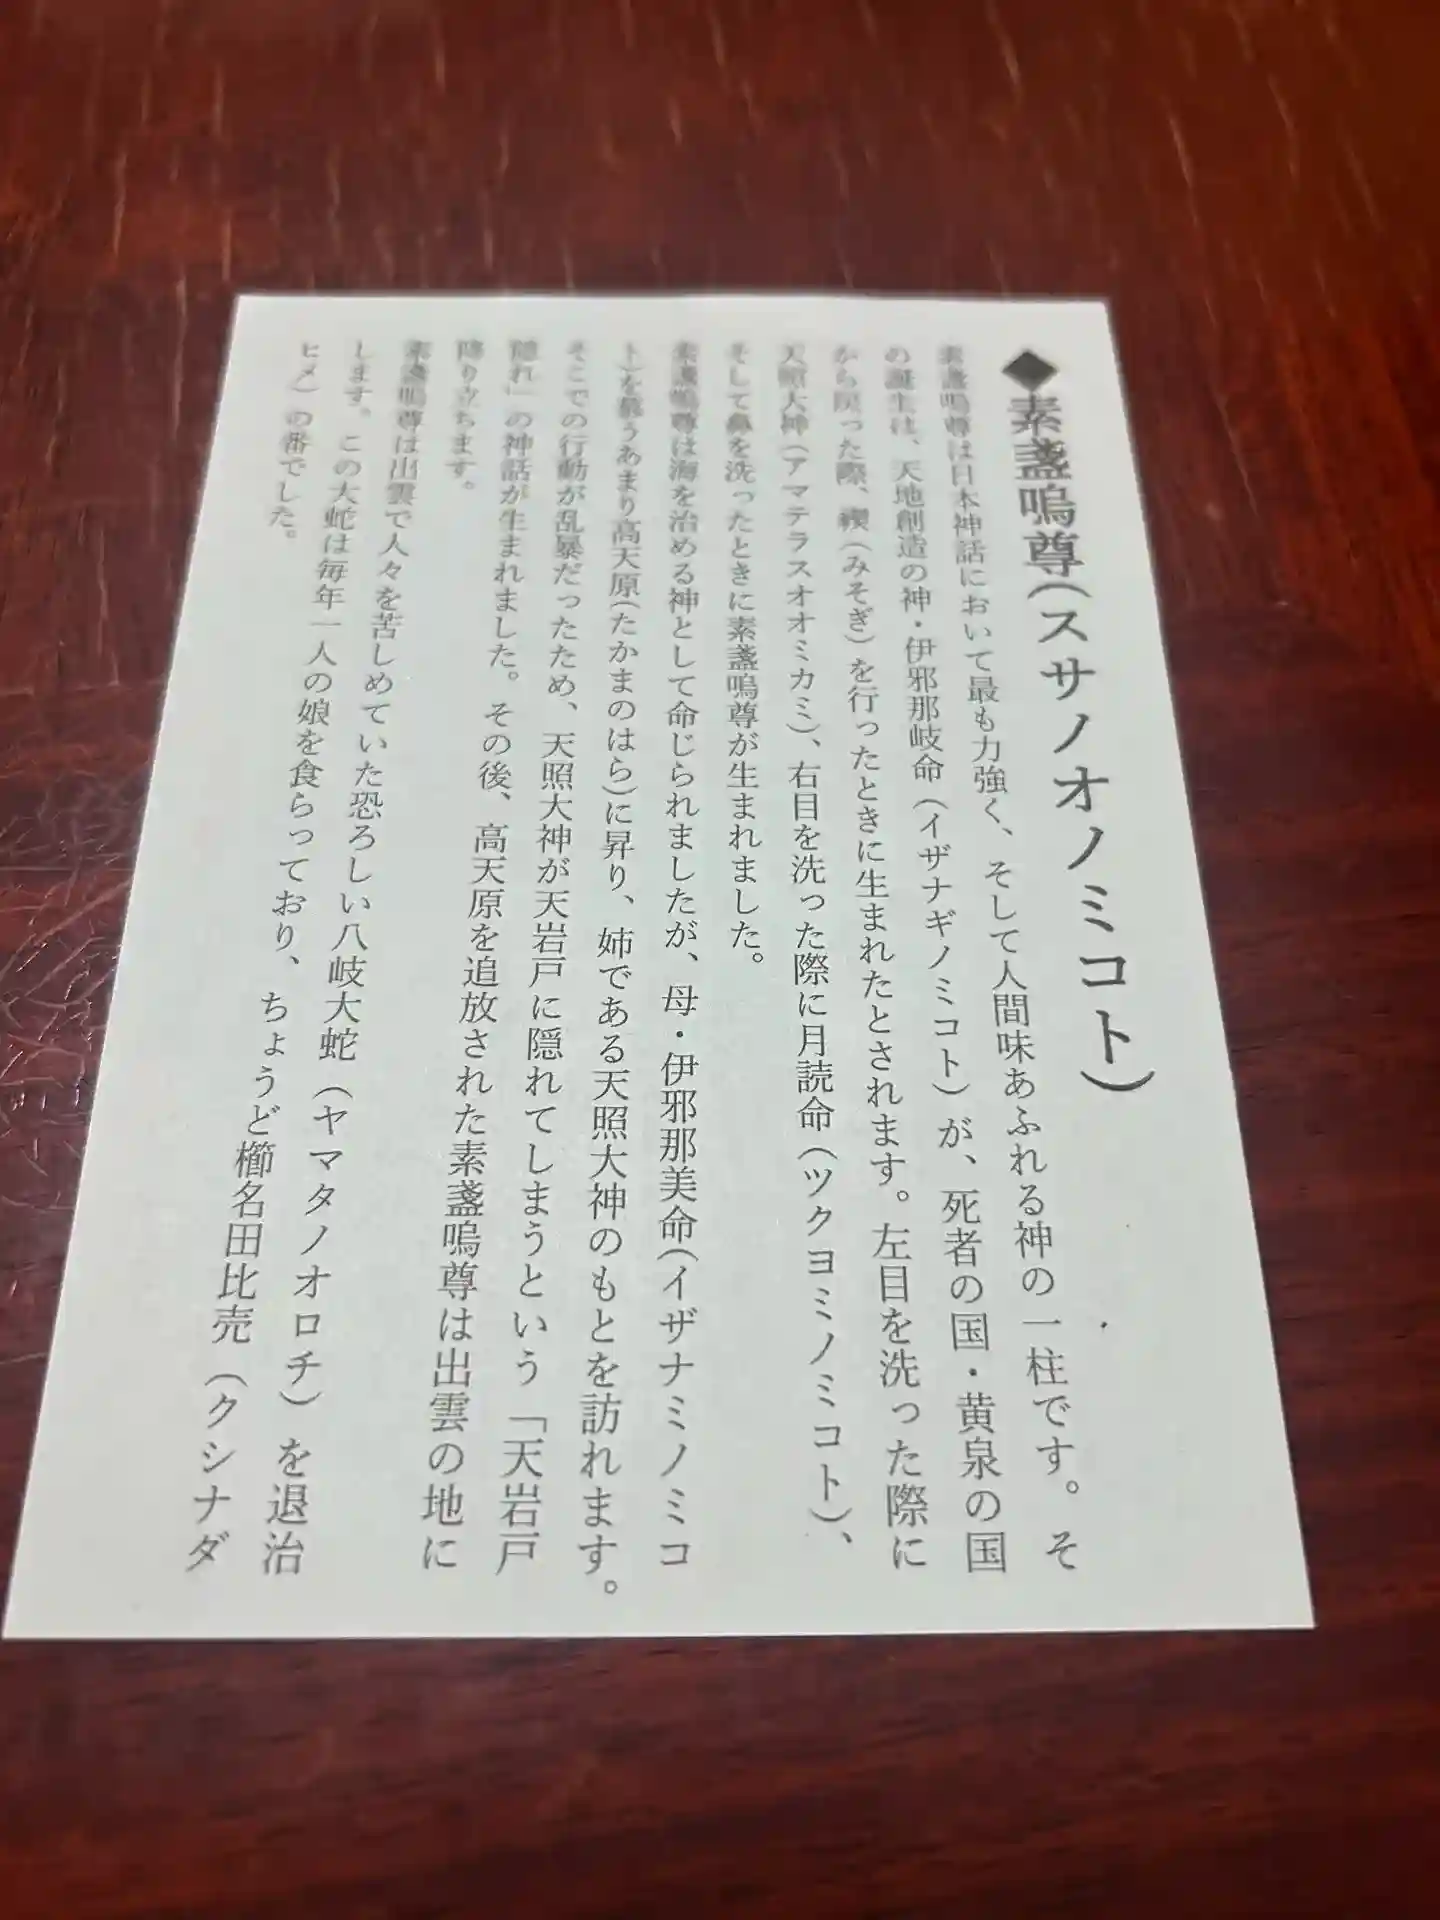 ◆素盞嗚尊(スサノオノミコト)
素盞嗚尊は日本神話において最も力強く、そして人間味あふれる神の一柱です。そ
の誕生は、天地創造の神・伊邪那岐命（イザナギノミコト）が、死者の国・黄泉の国
から戻った際、禊（みそぎ）を行ったときに生まれたとされます。左目を洗った際に
天照大神（アマテラスオオミカミ）、右目を洗った際に月読命（ツクヨミノミコト）、
そして鼻を洗ったときに素盞嗚尊が生まれました。
素盞嗚尊は海を治める神として命じられましたが、母・伊邪那美命(イザナミノミコ
ト)を慕うあまり高天原(たかまのはら)に昇り、姉である天照大神のもとを訪れます。
そこでの行動が乱暴だったため、天照大神が天岩戸に隠れてしまうという「天岩戸
隠れ」の神話が生まれました。その後、高天原を追放された素盞嗚尊は出雲の地に
降り立ちます。
素盞嗚尊は出雲で人々を苦しめていた恐ろしい八岐大蛇（ヤマタノオロチ）を退治
します。この大蛇は毎年一人の娘を食らっており、ちょうど櫛名田比売（クシナダ
ヒメ）の番でした。